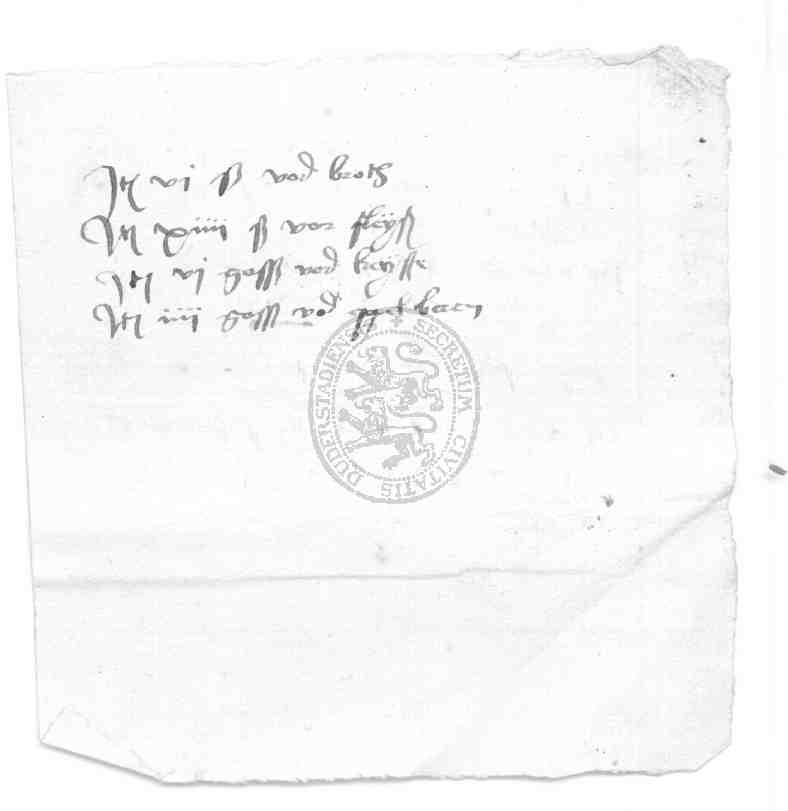 Itē vi ß vor broth
Itē xiiii ß vor fleysß
Itē vi goss vor
Itē iiii goss vor
SECRETUM CIVITATIS DUDERSTADIENSIS